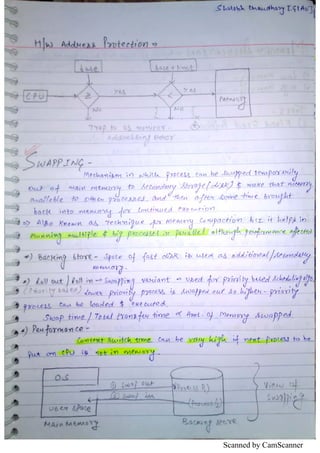 Sharesth Choudhary [GLAU]
H/W Address Protection →
base
base + limit
CPU
≥
Yes
<
Yes
memory
No
No
Trap to os monitor -
addressing error
SWAPPING -
Mechanism in which process can be swapped temporarily
out of main memory to secondary storage [disk] & make that memory
available to other processes and then after some time brought
back into memory for continued execution
Also known as technique for memory compaction bcz it helps in
running multiple & big processes in parallel although performance affected
Backing store - space of fast disk is used as additional/secondary
memory.
Roll out / Roll in → Swapping variant - used for priority based scheduling algo
(Priority based) lower priority process is swapped out so higher-priority
process can be loaded & executed
Swap time / Total transfer time ∝ Amt of memory swapped
Performance -
Context switch time can be very high if next process to be
put on CPU is not in memory.
O.S
① swap out
Process P1
View of
user space
② swap in
(Process P2)
Swapping
Main Memory
Backing store
Scanned by CamScanner